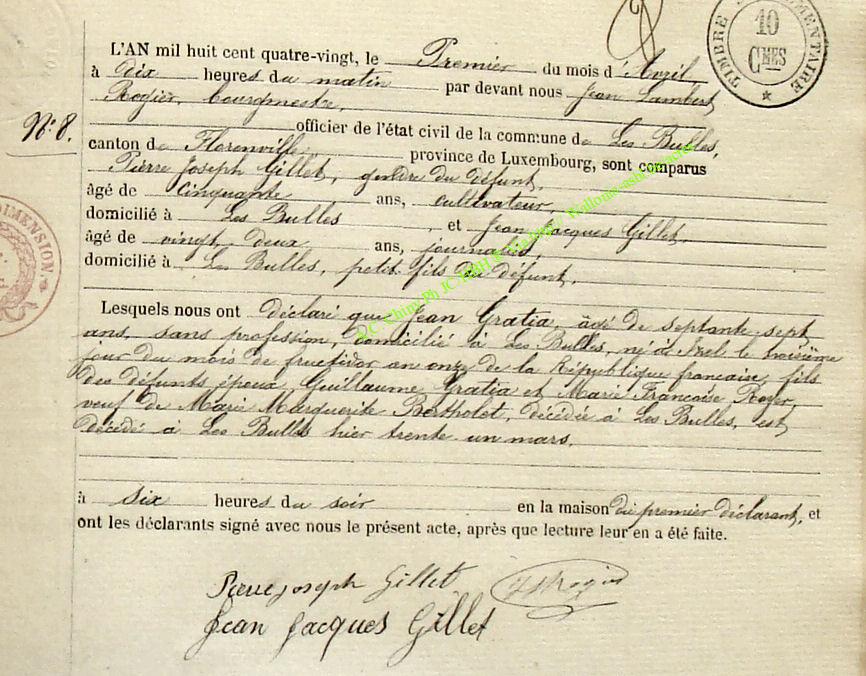 TIMBRE
10
CMES
L'AN mil huit cent quatre-vingt, le Premier du mois d'Avril,
à dix heures du matin par devant nous Jean Lambert
Rogier, bourgmestre,
N° 8.
officier de l'état civil de la commune de Les Bulles,
canton de Florenville province de Luxembourg, sont comparus
Pierre Joseph Gillet, gendre du défunt,
âgé de cinquante ans, cultivateur,
domicilié à Les Bulles, et Jean Jacques Gillet,
âgé de vingt-deux ans, journalier,
domicilié à Les Bulles, petit-fils du défunt.
DIMENSION
Lesquels nous ont déclaré que Jean Gratia, âgé de septante-sept
ans, sans profession, domicilié à Les Bulles, né à Izel le troisième
jour du mois de fructidor an onze de la République française, fils
des défunts époux Guillaume Gratia et Marie Françoise Roger,
veuf de Marie Marguerite Bertholet, décédée à Les Bulles, est
décédé à Les Bulles hier trente-un mars,
à six heures du soir en la maison du premier déclarant, et
ont les déclarants signé avec nous le présent acte, après que lecture leur en a été faite.
Pierre joseph Gillet
Jean Jacques Gillet